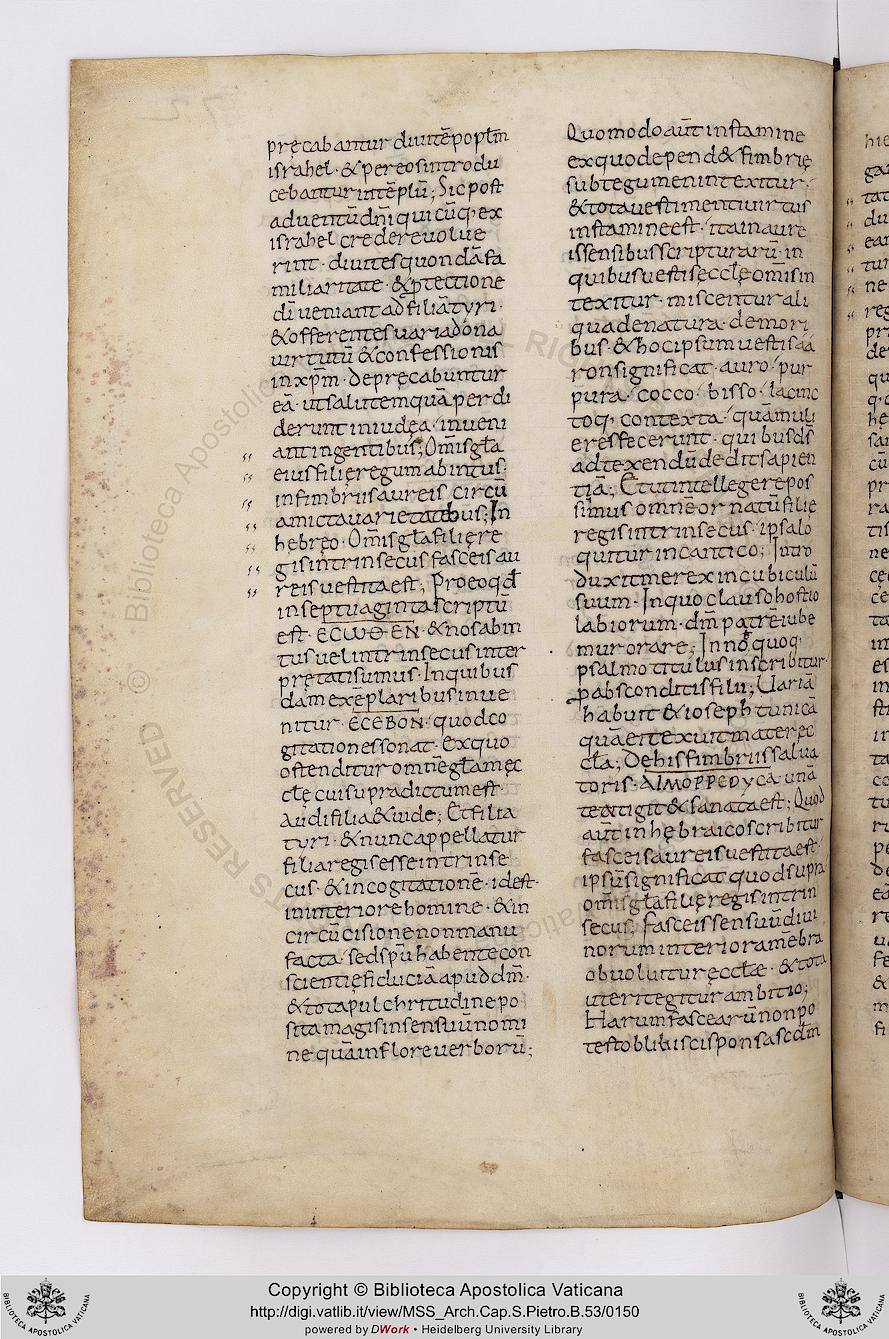 pręcabantur diuitē popłm
israhel · & per eos introdu
cebantur intēplū; Sic post
aduentū dn̄i quicūq; ex
israhel credere uolue
rint · diuites quondā fa
miliaritate · & ptectione
dī ueniant ad filiā tyri ·
& offerentes uaria dona
uirtutū & confessionis
in xp̄m · depręcabuntur
eā · ut salutem quā perdi
derunt in iudęa · inueni
ant in gentibus; Om̄is gła
eius filię regum abintus ·
in fimbriis aureis circū
amicta uarietatebus; In
hebręo · Om̄is gła filię re
gis intrinsecus fasceis au
reis uestita est; Pro eo qđ
in septuaginta scriptū
est · ЄCѠΘЄN · & nos abin
tus uel intrinsecus inter
prętati sumus · In quibus
dam exēplaribus inue
nitur · ЄCЄBON · quod co
gitationes sonat · Ex quo
ostenditur omnē głam ęc
cłę cui supra dictum est ·
Audi filia & uide; Et filia
tyri · & nunc appellatur
filia regis esse intrinse
cus · & in cogitationē · id est ·
in interiore homine · & in
circūcisione non manu
facta · sed sp̄u habente con
scientię fiduciā apud dm̄ ·
& tota pulchritudine po
sita magis in sensuū nomi
ne quā in flore uerborū;
Quomodo aūt in stamine
ex quo depend& fimbrię
subtegumen intexitur ·
& tota uestimenti uirtus
in stamine est · ita in aure
is sensibus scripturarū · in
quibus uestis ęccłę omis in
texitur · miscentur ali
qua de natura · de mori
bus · & hoc ipsum uestis aa
ron significat · auro · pur
pura · cocco · bisso · lacinc
toq; contexta · quā muli
eres fecerunt · quibus ds̄
ad texendū dedit sapien
tiā; Et ut intellegere pos
simus omne ornatū filię
regis intrinsecus · ipsa lo
quitur in cantico; Intro
duxit me rex in cubiculū
suum · In quo clauso hostio
labiorum · dm̄ patrē iube
mur orare; In n̄o quoq;
psalmo titulus inscribitur ·
p absconditis filii; Uariā
habuit & ioseph tunicā
quā ei texuit mater ęc
cła; De his fimbriis salua
toris · AIMOPPEOYCA unā
teatigit & sanata est; Quod
aūt in hębraico scribitur
fasceis aureis uestita est ·
ipsū significat quod supra ·
om̄is gła filię regis intrin
secus; Fasceis sensuū diui
norum interiora mēbra
obuoluitur ęccłae · & tota
uteri tegitur ambitio;
Harum fascearū non po
test obliuisci sponsa scđm